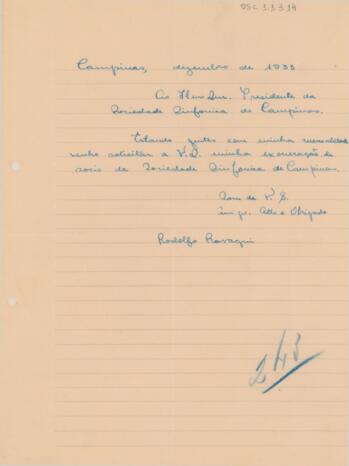 OSC 1.1.3.19
Campinas, dezembro de 1933
Ao Ilmo Snr. Presidente da
Sociedade Sinfonica de Campinas.
Estando quites com minha mensalidade
venho solicitar a V.S. minha exoneração de
socio da Sociedade Sinfonica de Campinas.
Sou de V. S.
Amgo. Atto e Obrigado
Rodolfo
243